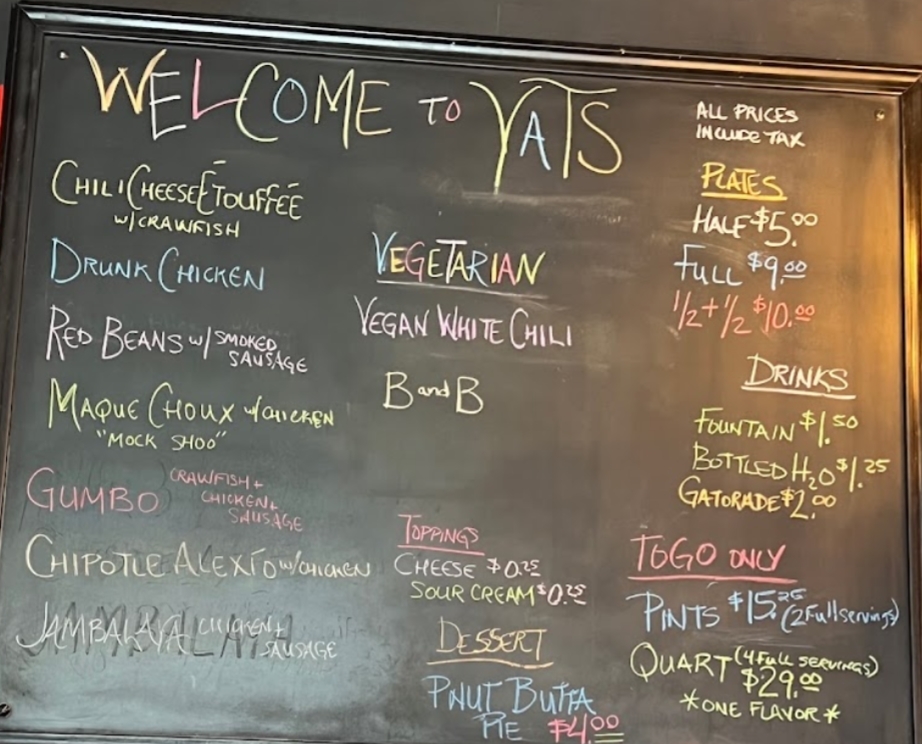 WELCOME TO YATS
CHILI CHEESE ÉTOUFFÉE
W/CRAWFISH
DRUNK CHICKEN
RED BEANS W/ SMOKED
SAUSAGE
MAQUE CHOUX W/CHICKEN
"MOCK SHOO"
GUMBO CRAWFISH +
CHICKEN +
SAUSAGE
CHIPOTLE ALEXIO W/CHICKEN
JAMBALAYA CHICKEN +
SAUSAGE
VEGETARIAN
VEGAN WHITE CHILI
B and B
TOPPINGS
CHEESE $0.25
SOUR CREAM $0.25
DESSERT
PNUT BUTTA
PIE $4.00
ALL PRICES
INCLUDE TAX
PLATES
HALF $5.00
FULL $9.00
1/2 + 1/2 $10.00
DRINKS
FOUNTAIN $1.50
BOTTLED H2O $1.25
GATORADE $2.00
TOGO ONLY
PINTS $15.25 (2 Full servings)
QUART (4 FULL SERVINGS)
$29.00
*ONE FLAVOR*